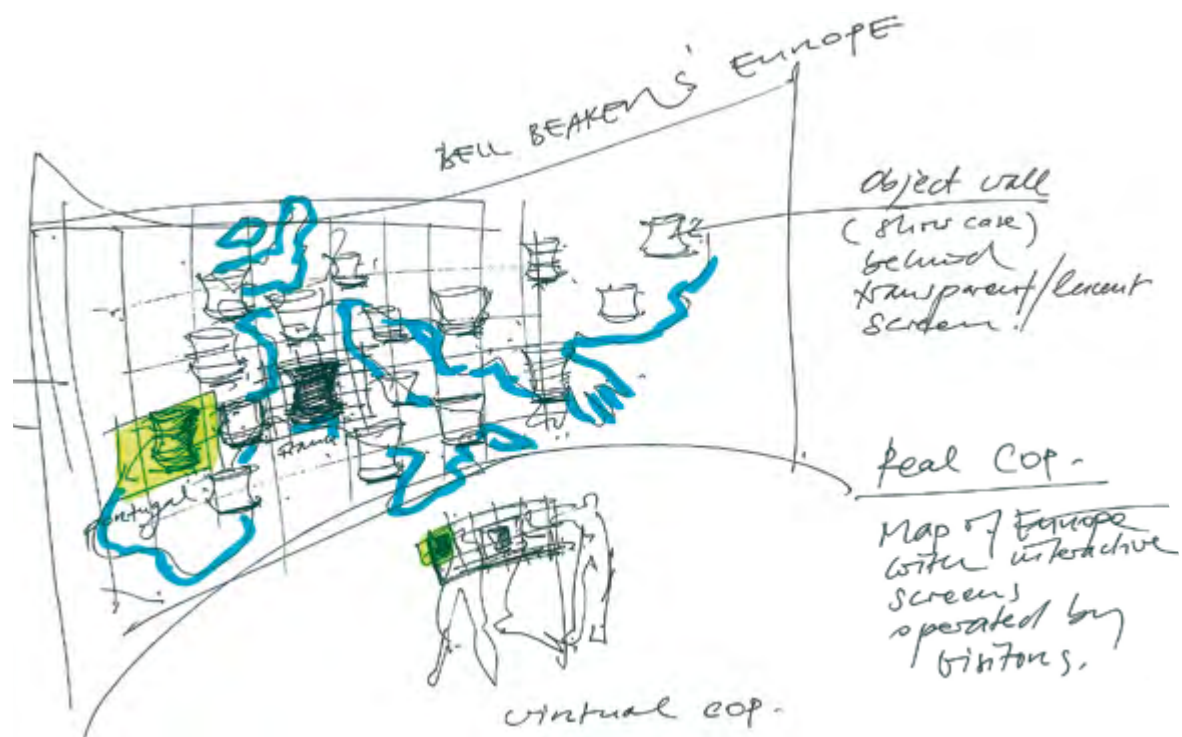 BELL BEAKERS' EUROPE
Object wall
(show case)
behind
transparent/lucent
screen.
portugal
france
Real COP.
Map of Europe
with interactive
screens
operated by
visitors.
virtual COP.